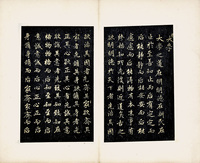 大學
大學之道在明明德在親民在
止於至善知止而后有定定而
后能靜靜而后能安安而后能
慮慮而后能得物有本末事有
終始知所先後則近道矣古之
欲明明德於天下者先治其國
欲治其國者先齊其家欲齊其
家者先脩其身欲脩其身者先
正其心欲正其心者先誠其意
欲誠其意者先致其知致知在
格物物格而后知至知至而后
意誠意誠而后心正心正而后
身脩身脩而后家齊家齊而后